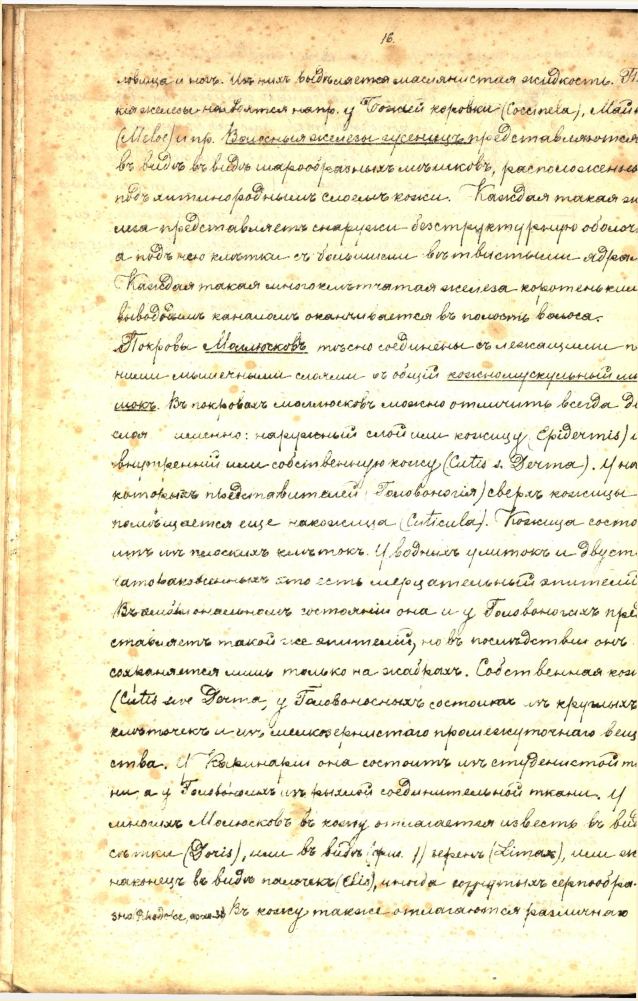 16.
ловища и ногъ. Изъ нихъ выдѣляется маслянистая жидкость. Та
кія железы имѣются напр. у Божьей коровки (Coccinela), Май
(Meloe) и пр. Волосныя железы гусеницъ представляются
въ видѣ въ видѣ шарообразныхъ мѣшковъ, расположенны
подъ хитинороднымъ слоемъ кожи. Каждая такая же
леза представляетъ снаружи безструктурную оболоч
а подъ нею клѣтки съ большими вѣтвистыми ядрам
Каждая такая многоклѣтчатая железа коротенькимъ
выводнымъ каналомъ оканчивается въ полость волоса.
Покровы Моллюсковъ тѣсно соединены съ лежащими п
ними мышечными слоями въ общій кожномускульный мѣ
шокъ. Въ покровахъ моллюсковъ можно отличить всегда д
слоя именно: наружный слой или кожицу (Epidermis) и
внутренній или собственную кожу (Cutis s. Derma). У нѣ
которыхъ представителей (Головоногія) сверхъ кожицы
помѣщается еще накожица (Cuticula). Кожица состо
итъ изъ плоскихъ клѣтокъ. У водныхъ улитокъ и двуст
это есть мерцательный эпителій
Въ эмбріональномъ состояніи она и у Головоногихъ пре
ставляетъ такой же эпителій, но въ послѣдствіи онъ
сохраняется лишь только на жабрахъ. Собственная кож
(Cutis sive Derma, у Головоносныхъ состоитъ изъ круглыхъ
клѣточекъ и изъ мелкозернистаго промежуточнаго вещ
ства. У Каринаріи она состоитъ изъ студенистой т
ни, а у Головоногихъ изъ рыхлой соединительной ткани. У
многихъ Молюсковъ въ кожу отлагается известь въ вид
сѣтки (Doris), или въ видѣ (фиг. 1) зеренъ (Limax), или ж
наконецъ въ видѣ палочекъ, иногда согнутыхъ серпообра
зно. Въ кожу также отлагаются различнаю